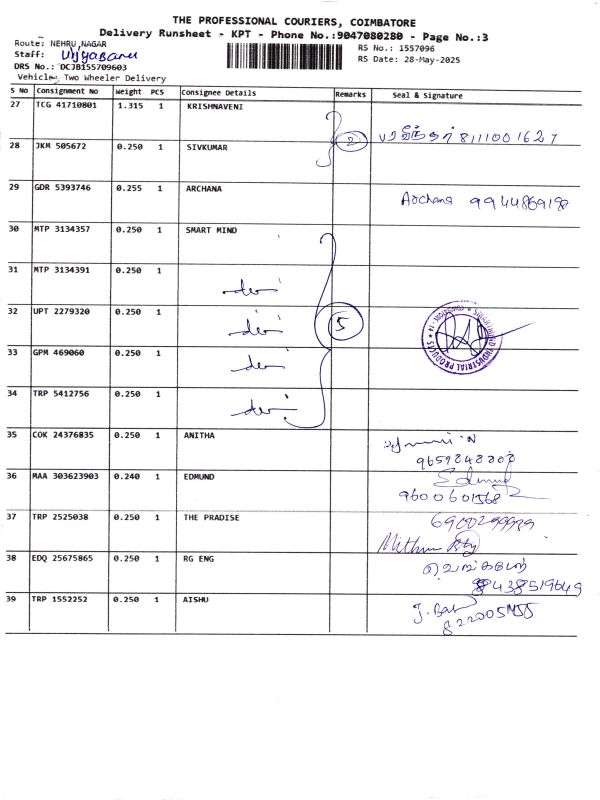 THE PROFESSIONAL COURIERS, COIMBATORE
Delivery Runsheet - KPT - Phone No.:9047080280 - Page No.:3
Route: NEHRU NAGAR
RS No.: 1557096
Staff: Vijyabanu
RS Date: 28-May-2025
DRS No.: DCJB155709603
Vehicle: Two Wheeler Delivery
S No Consignment No Weight PCS Consignee Details Remarks Seal & Signature
27 TCG 41710801 1.315 1 KRISHNAVENI
2 8111001627
28 JKM 505672 0.250 1 SIVKUMAR
29 GDR 5393746 0.255 1 ARCHANA
Archana 9944869198
30 MTP 3134357 0.250 1 SMART MIND
31 MTP 3134391 0.250 1
32 UPT 2279320 0.250 1 5
33 GPM 469060 0.250 1
34 TRP 5412756 0.250 1
35 COK 24376835 0.250 1 ANITHA
36 MAA 303623903 0.240 1 EDMUND
Edmund
9600601568
37 TRP 2525038 0.250 1 THE PRADISE
38 EDQ 25675865 0.250 1 RG ENG
39 TRP 1552252 0.250 1 AISHU